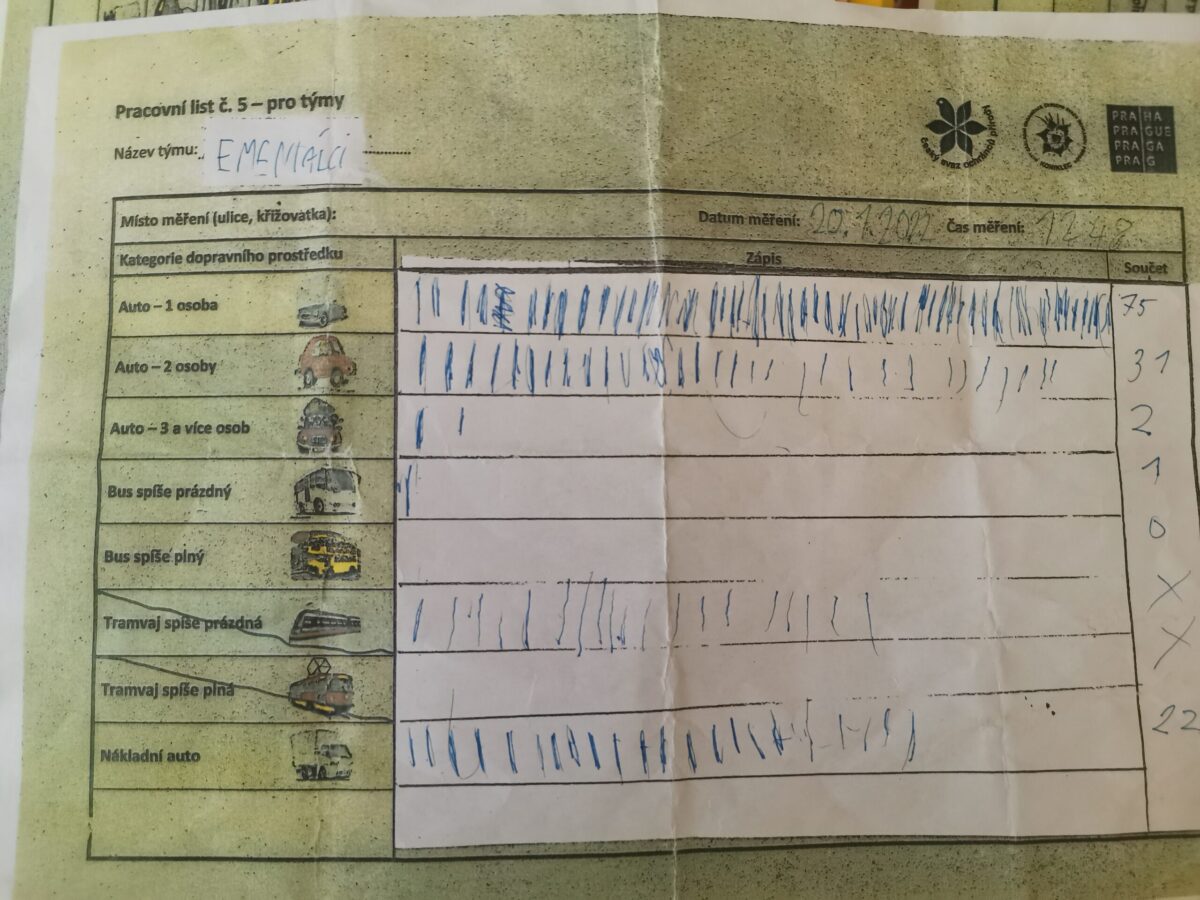 Pracovní list č. 5 – pro týmy
Název týmu: EMENTÁLCI
český svaz ochránců přírody
PRA HA
PRA GUE
PRA GA
PRA G
Místo měření (ulice, křižovatka): Datum měření: 20.1.2022 Čas měření: 12 48
Kategorie dopravního prostředku Zápis Součet
Auto – 1 osoba 75
Auto – 2 osoby 31
Auto – 3 a více osob 2
Bus spíše prázdný 1
Bus spíše plný 0
Tramvaj spíše prázdná X
Tramvaj spíše plná X
Nákladní auto 22